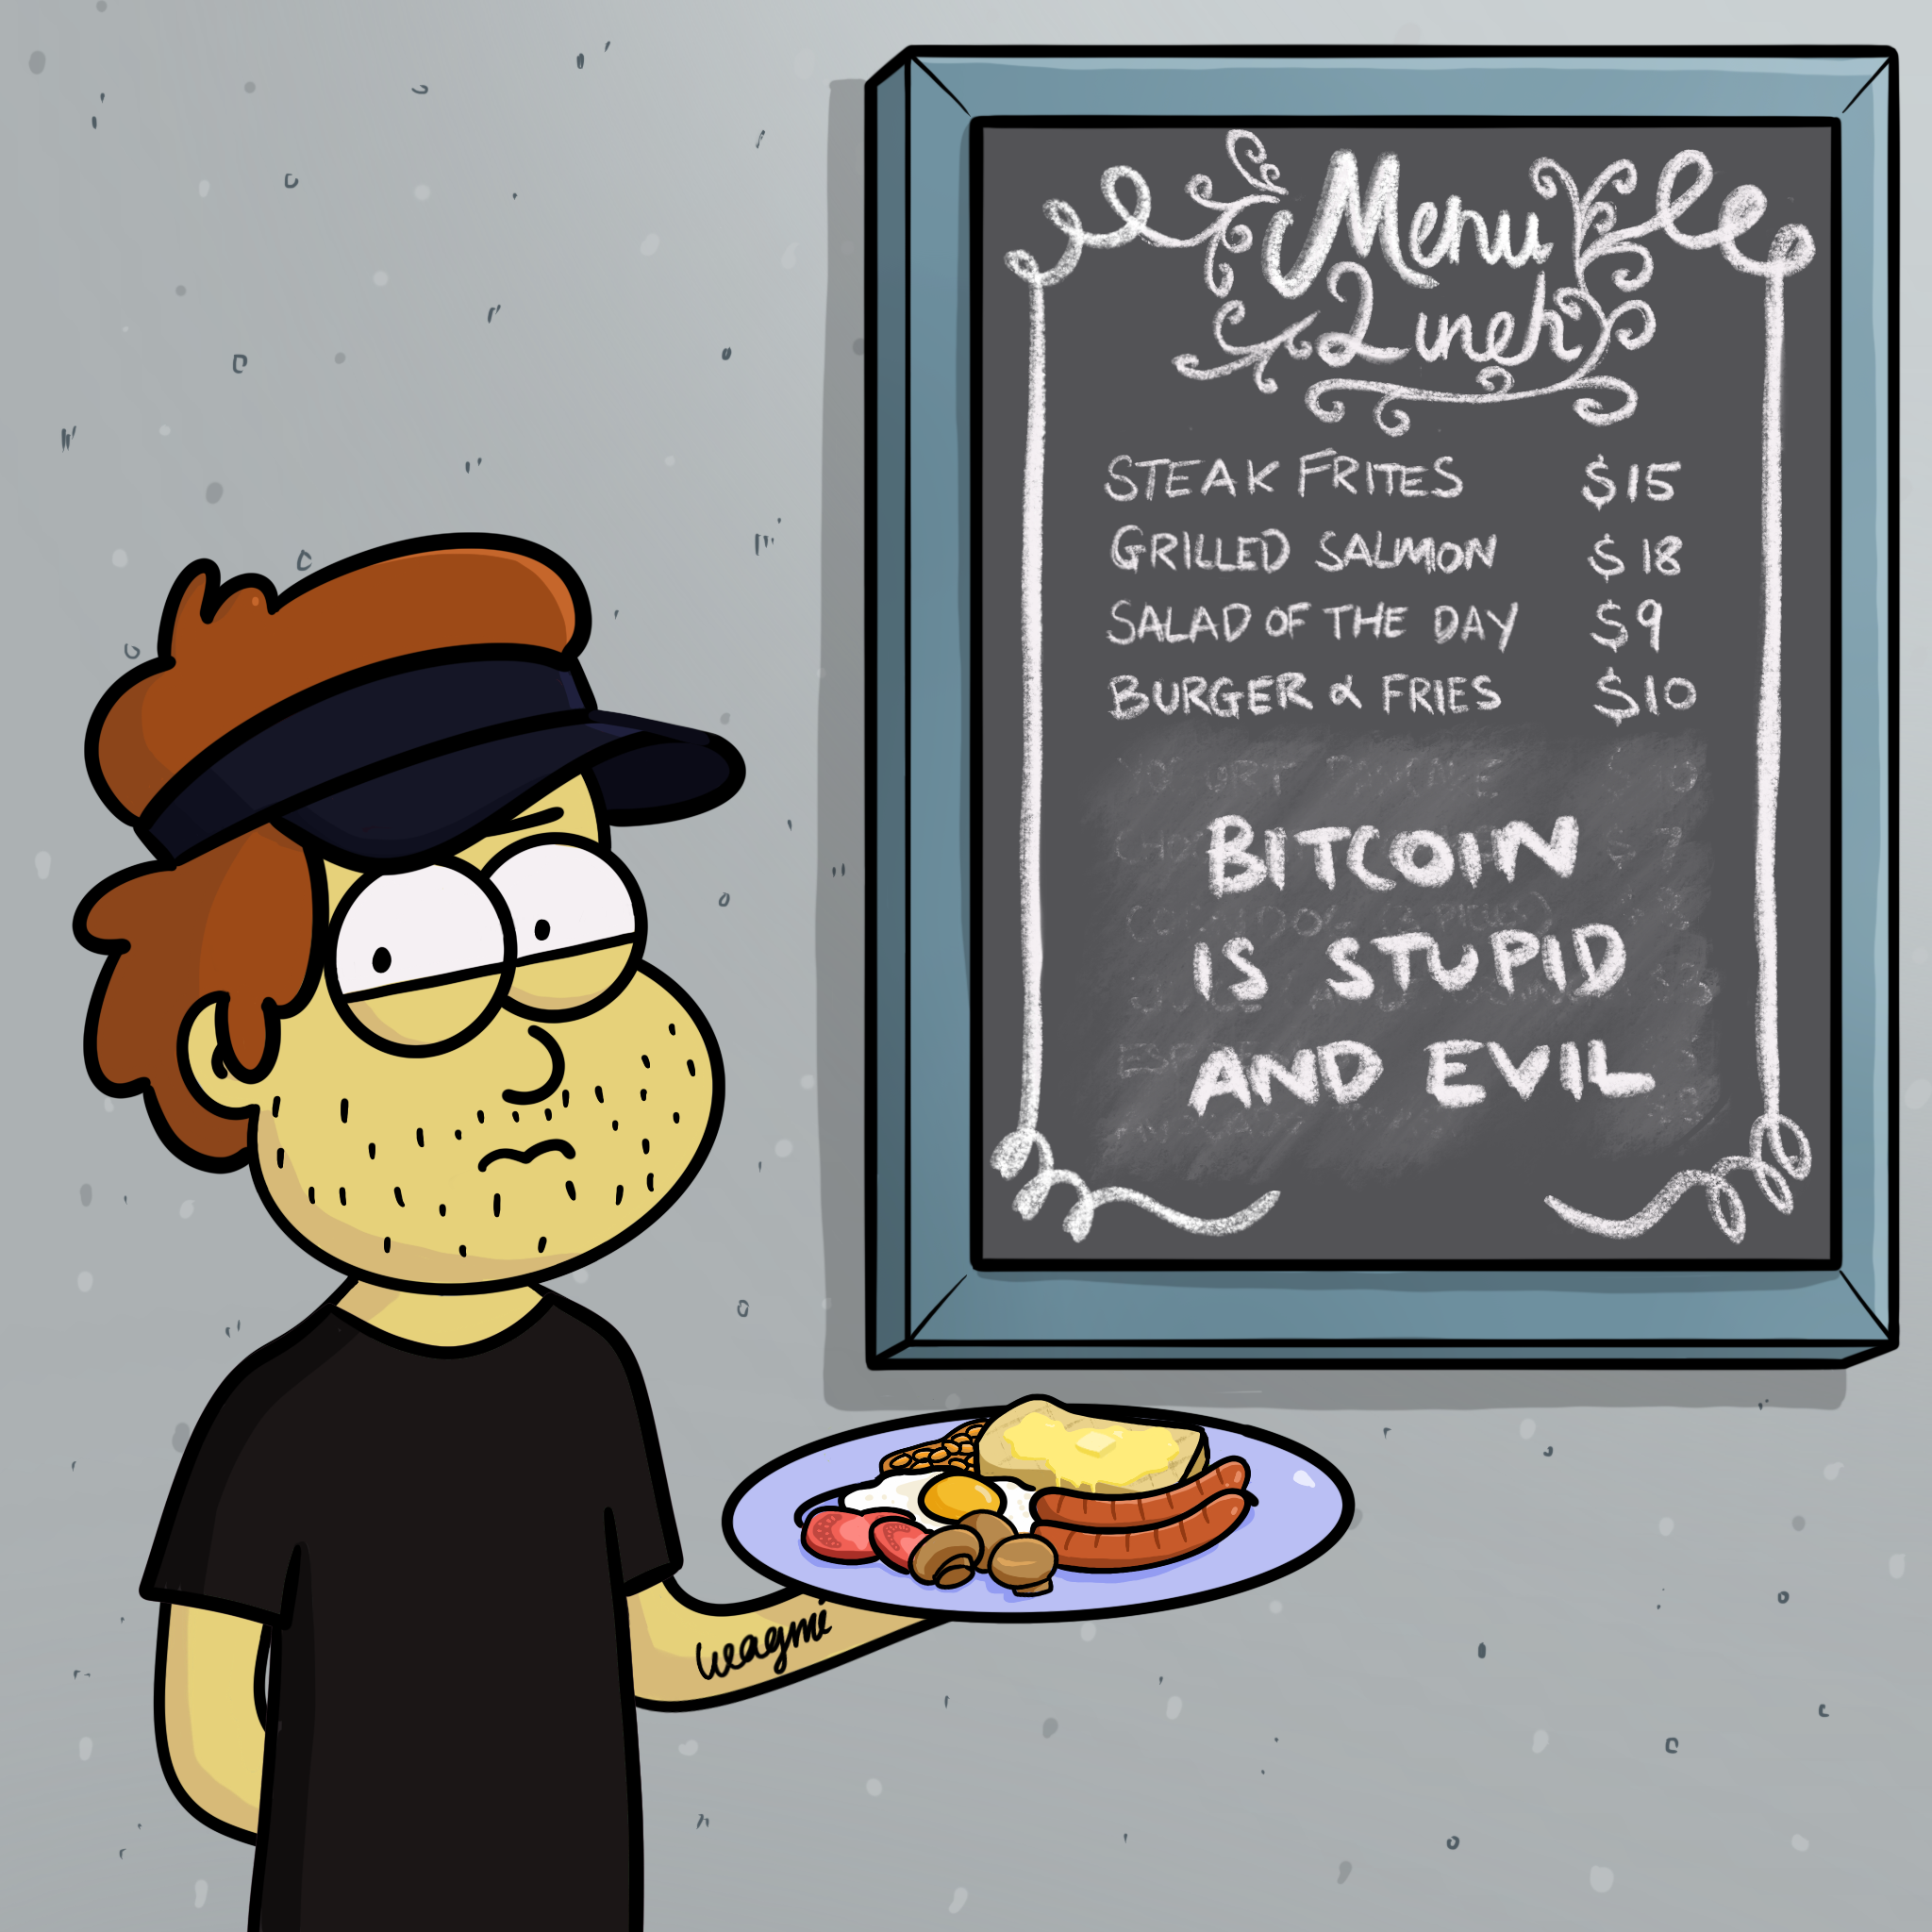 Menu
Lunch
STEAK FRITES $15
GRILLED SALMON $18
SALAD OF THE DAY $9
BURGER & FRIES $10
BITCOIN
IS STUPID
AND EVIL
wagmi